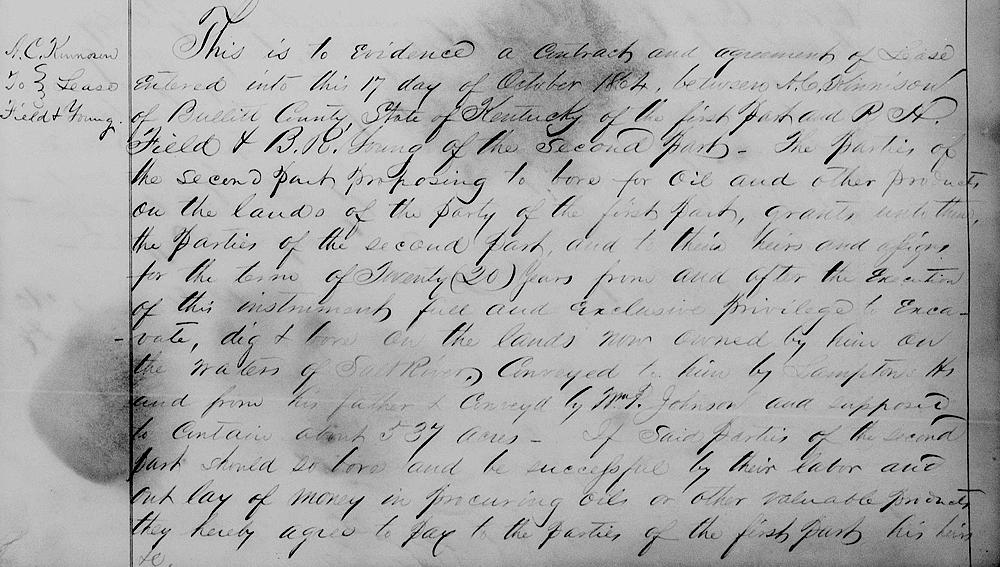 A. C. Kinnison
To } Lease
Field & Young.
This is to Evidence a Contract and agreement of Lease
Entered into this 17 day of October 1864, between A. C. Kinnison
of Bullitt County, State of Kentucky of the first part and R. H.
Field & B. R. Young of the Second Part - The parties of
the second part proposing to bore for Oil and other products
on the lands of the party of the first part, grants unto them,
the parties of the second part, and to their heirs and assigns
for the term of Twenty (20) Years from and after the Execution
of this instrument full and Exclusive privilege to Exca-
-vate, dig & bore on the lands now owned by him on
the waters of Salt River, Conveyed to him by Lamptons Hs
and from his father & Conveyd by Wm. P. Johnson and supposed
to Contain about 537 acres - If Said parties of the second
part should so bore and be successful by their labor and
out lay of money in procuring oils or other valuable products
they hereby agree to pay to the parties of the first part his heirs
&c.